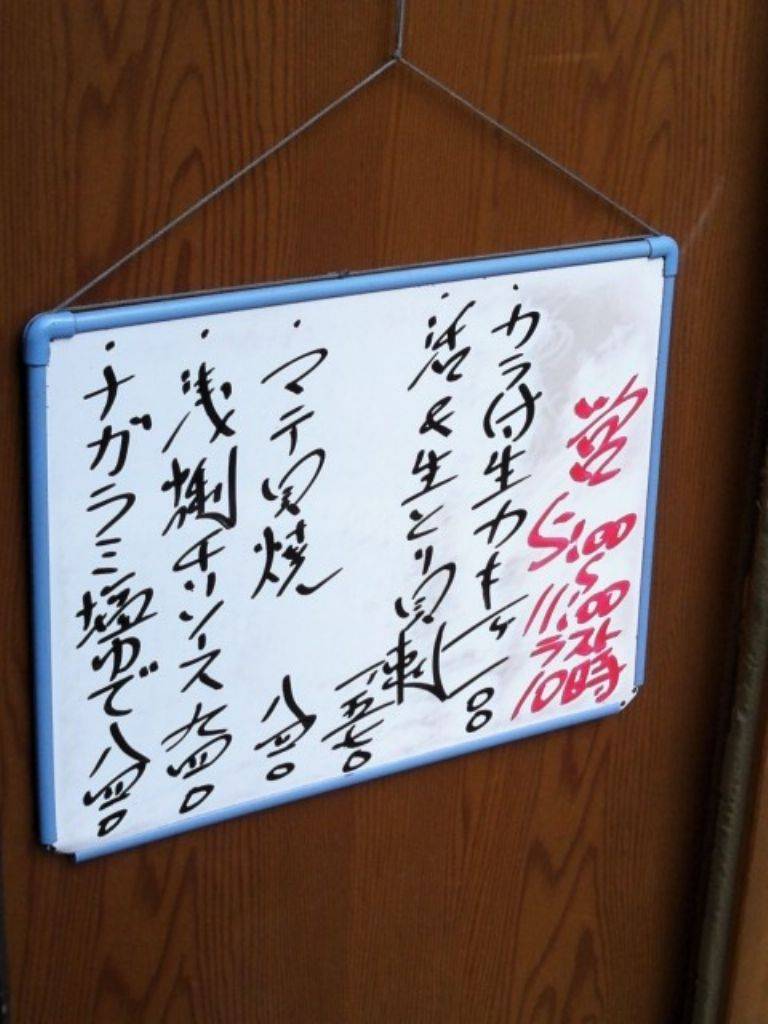 営 5:00〜11:00 ラスト10時
・カラ付生カキ 一ヶ
・活とり貝刺 一五七〇
・マテ貝焼 八四〇
・浅蜊チリソース 九四〇
・ナガラミ塩ゆで 八四〇